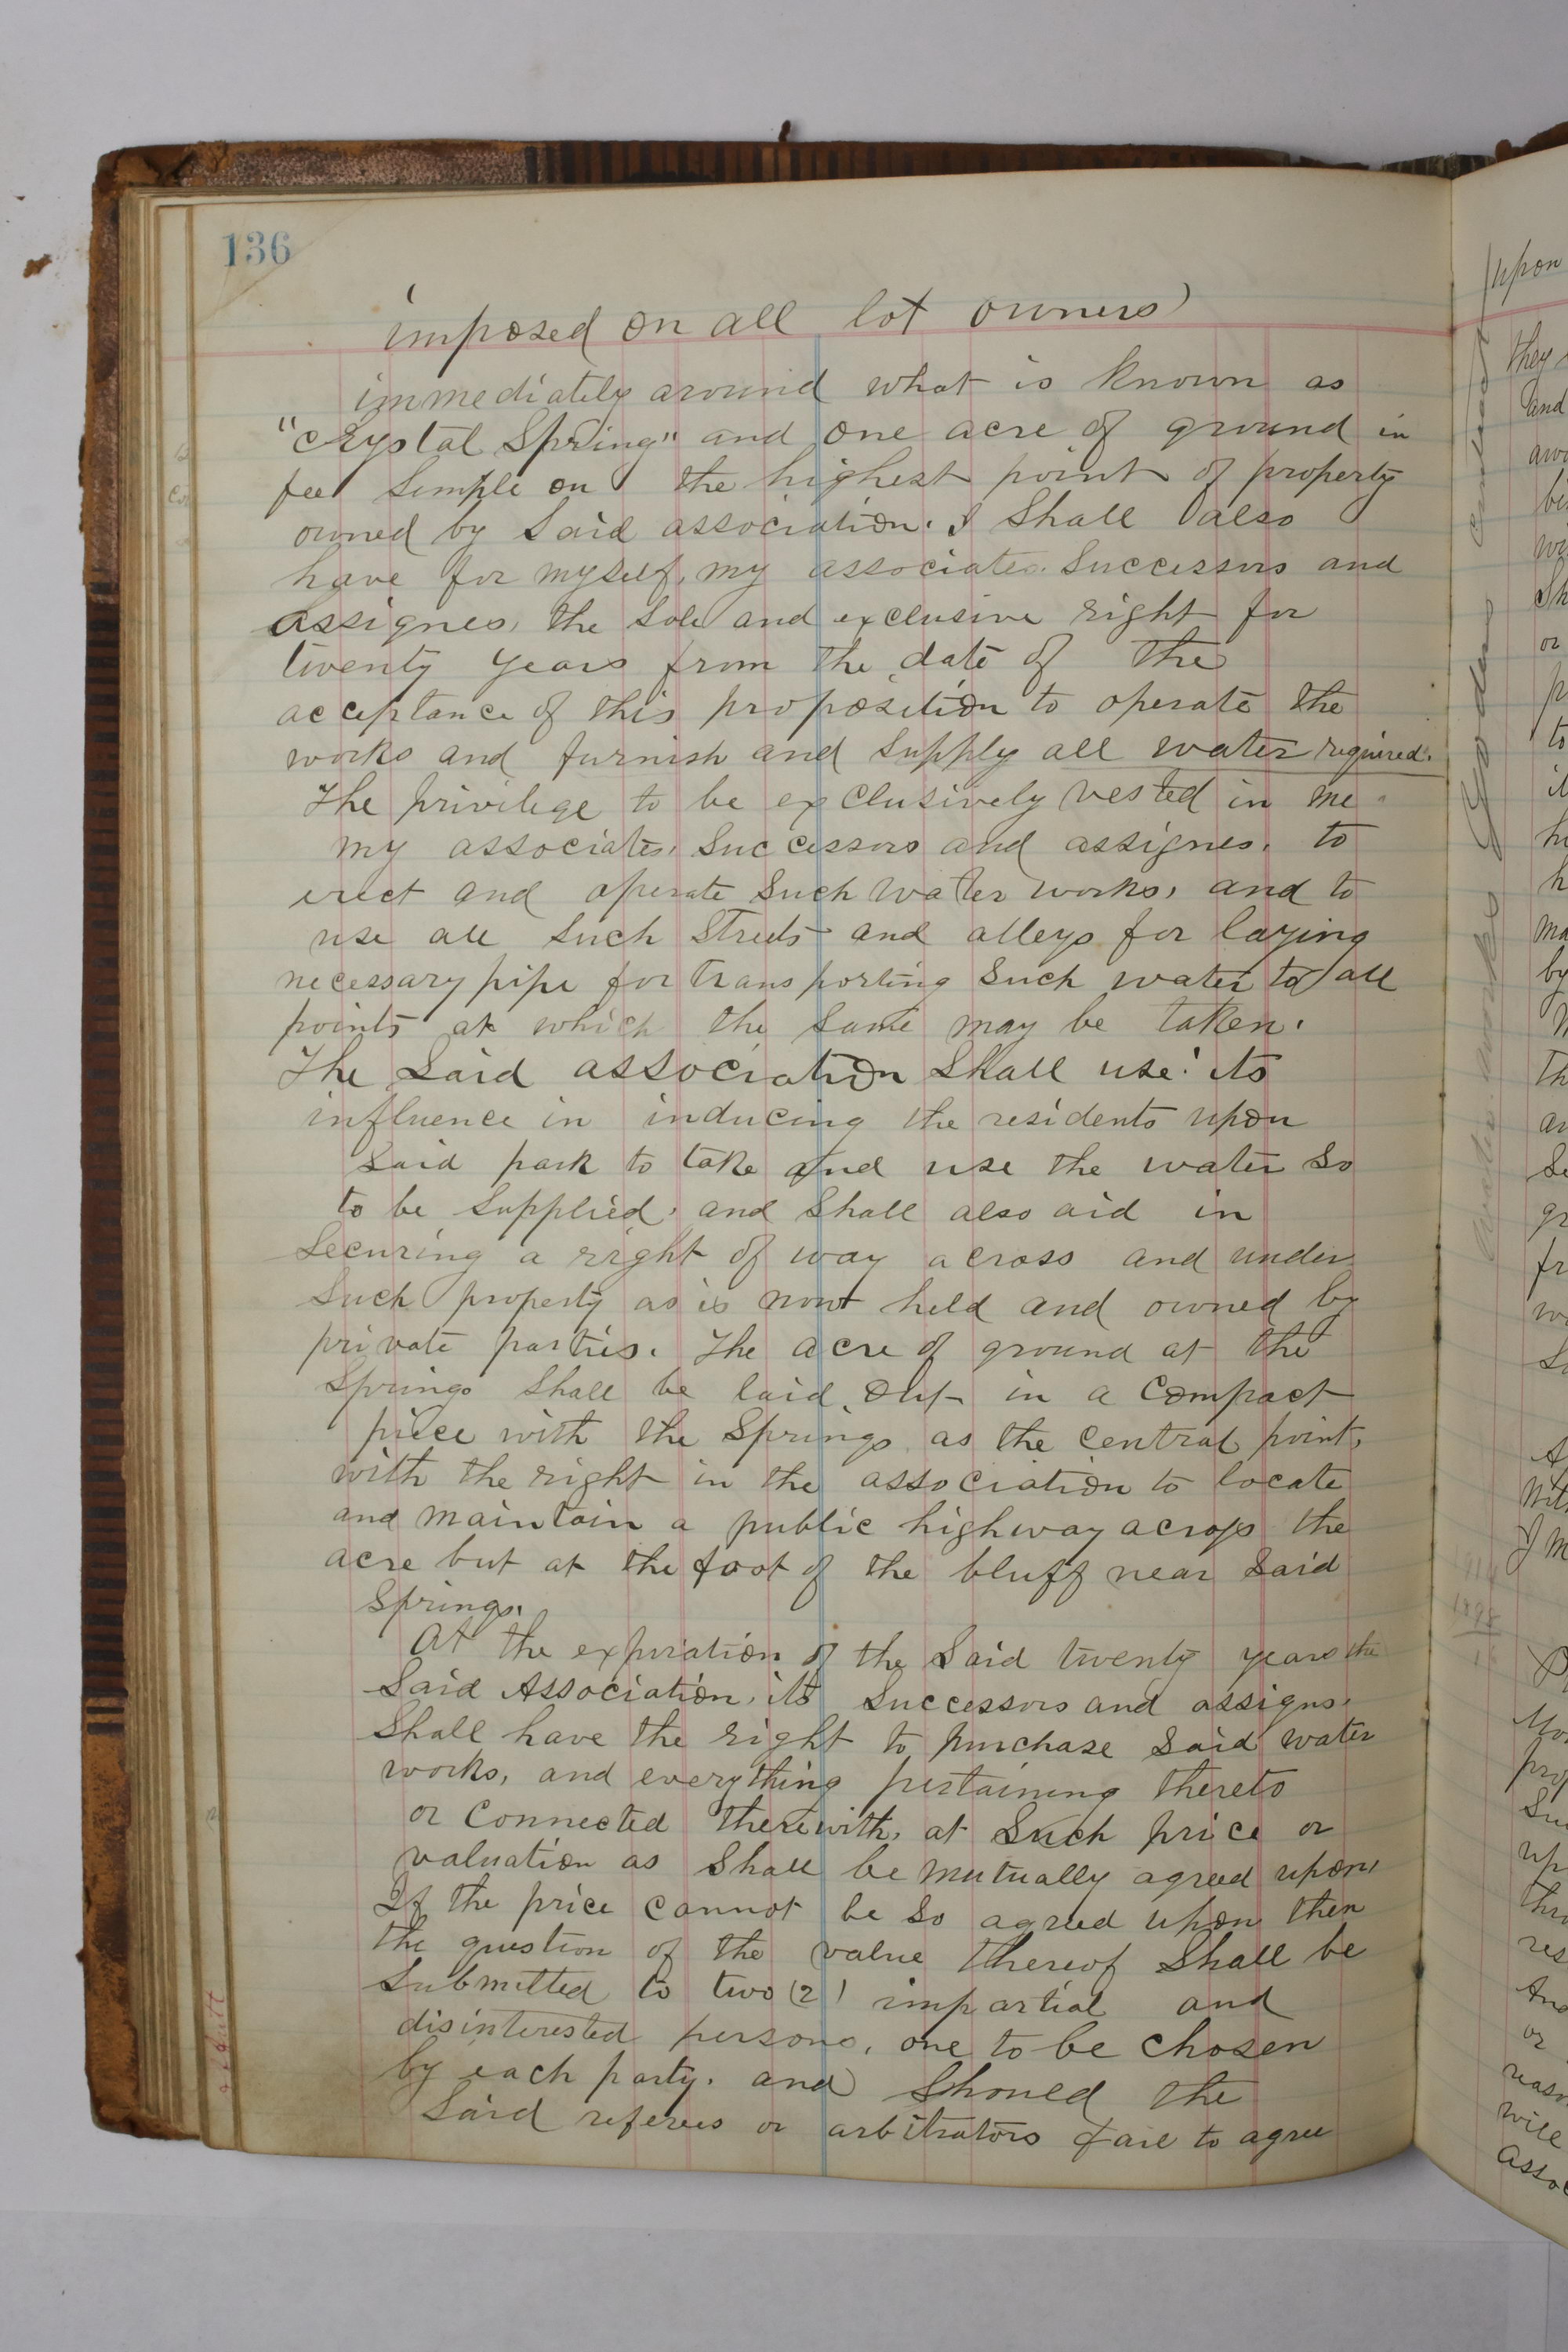 136
(imposed on all lot owners)
immediately around what is known as
"Crystal Spring" and one acre of ground in
fee simple on the highest point of property
owned by said association. I shall also
have for myself, my associates. successors and
assignes, the sole and exclusive right for
twenty years from the date of the
acceptance of this proposition to operate the
works and furnish and supply all water required.
The privilege to be exclusively vested in me
my associates, successors and assignes, to
erect and operate such water works, and to
use all such streets and alleys for laying
necessary pipe for transporting such water to all
points at which the same may be taken.
The said association shall use its
influence in inducing the residents upon
said park to take and use the water so
to be supplied, and shall also aid in
securing a right of way across and under
such property as is now held and owned by
private parties. The acre of ground at the
springs shall be laid out in a compact
piece with the springs as the central point,
with the right in the association to locate
and maintain a public highway across the
acre but at the foot of the bluff near said
springs.
At the expiration of the said twenty years the
said Association, its successors and assigns,
shall have the right to purchase said water
works, and everything pertaining thereto
or connected therewith, at such price or
valuation as shall be mutually agreed upon,
If the price cannot be so agreed upon then
the question of the value thereof shall be
submitted to two (2) impartial and
disinterested persons, one to be chosen
by each party. and should the
said referees or arbitrators fail to agree
upon
they
and
or
to
by
1898
or
will